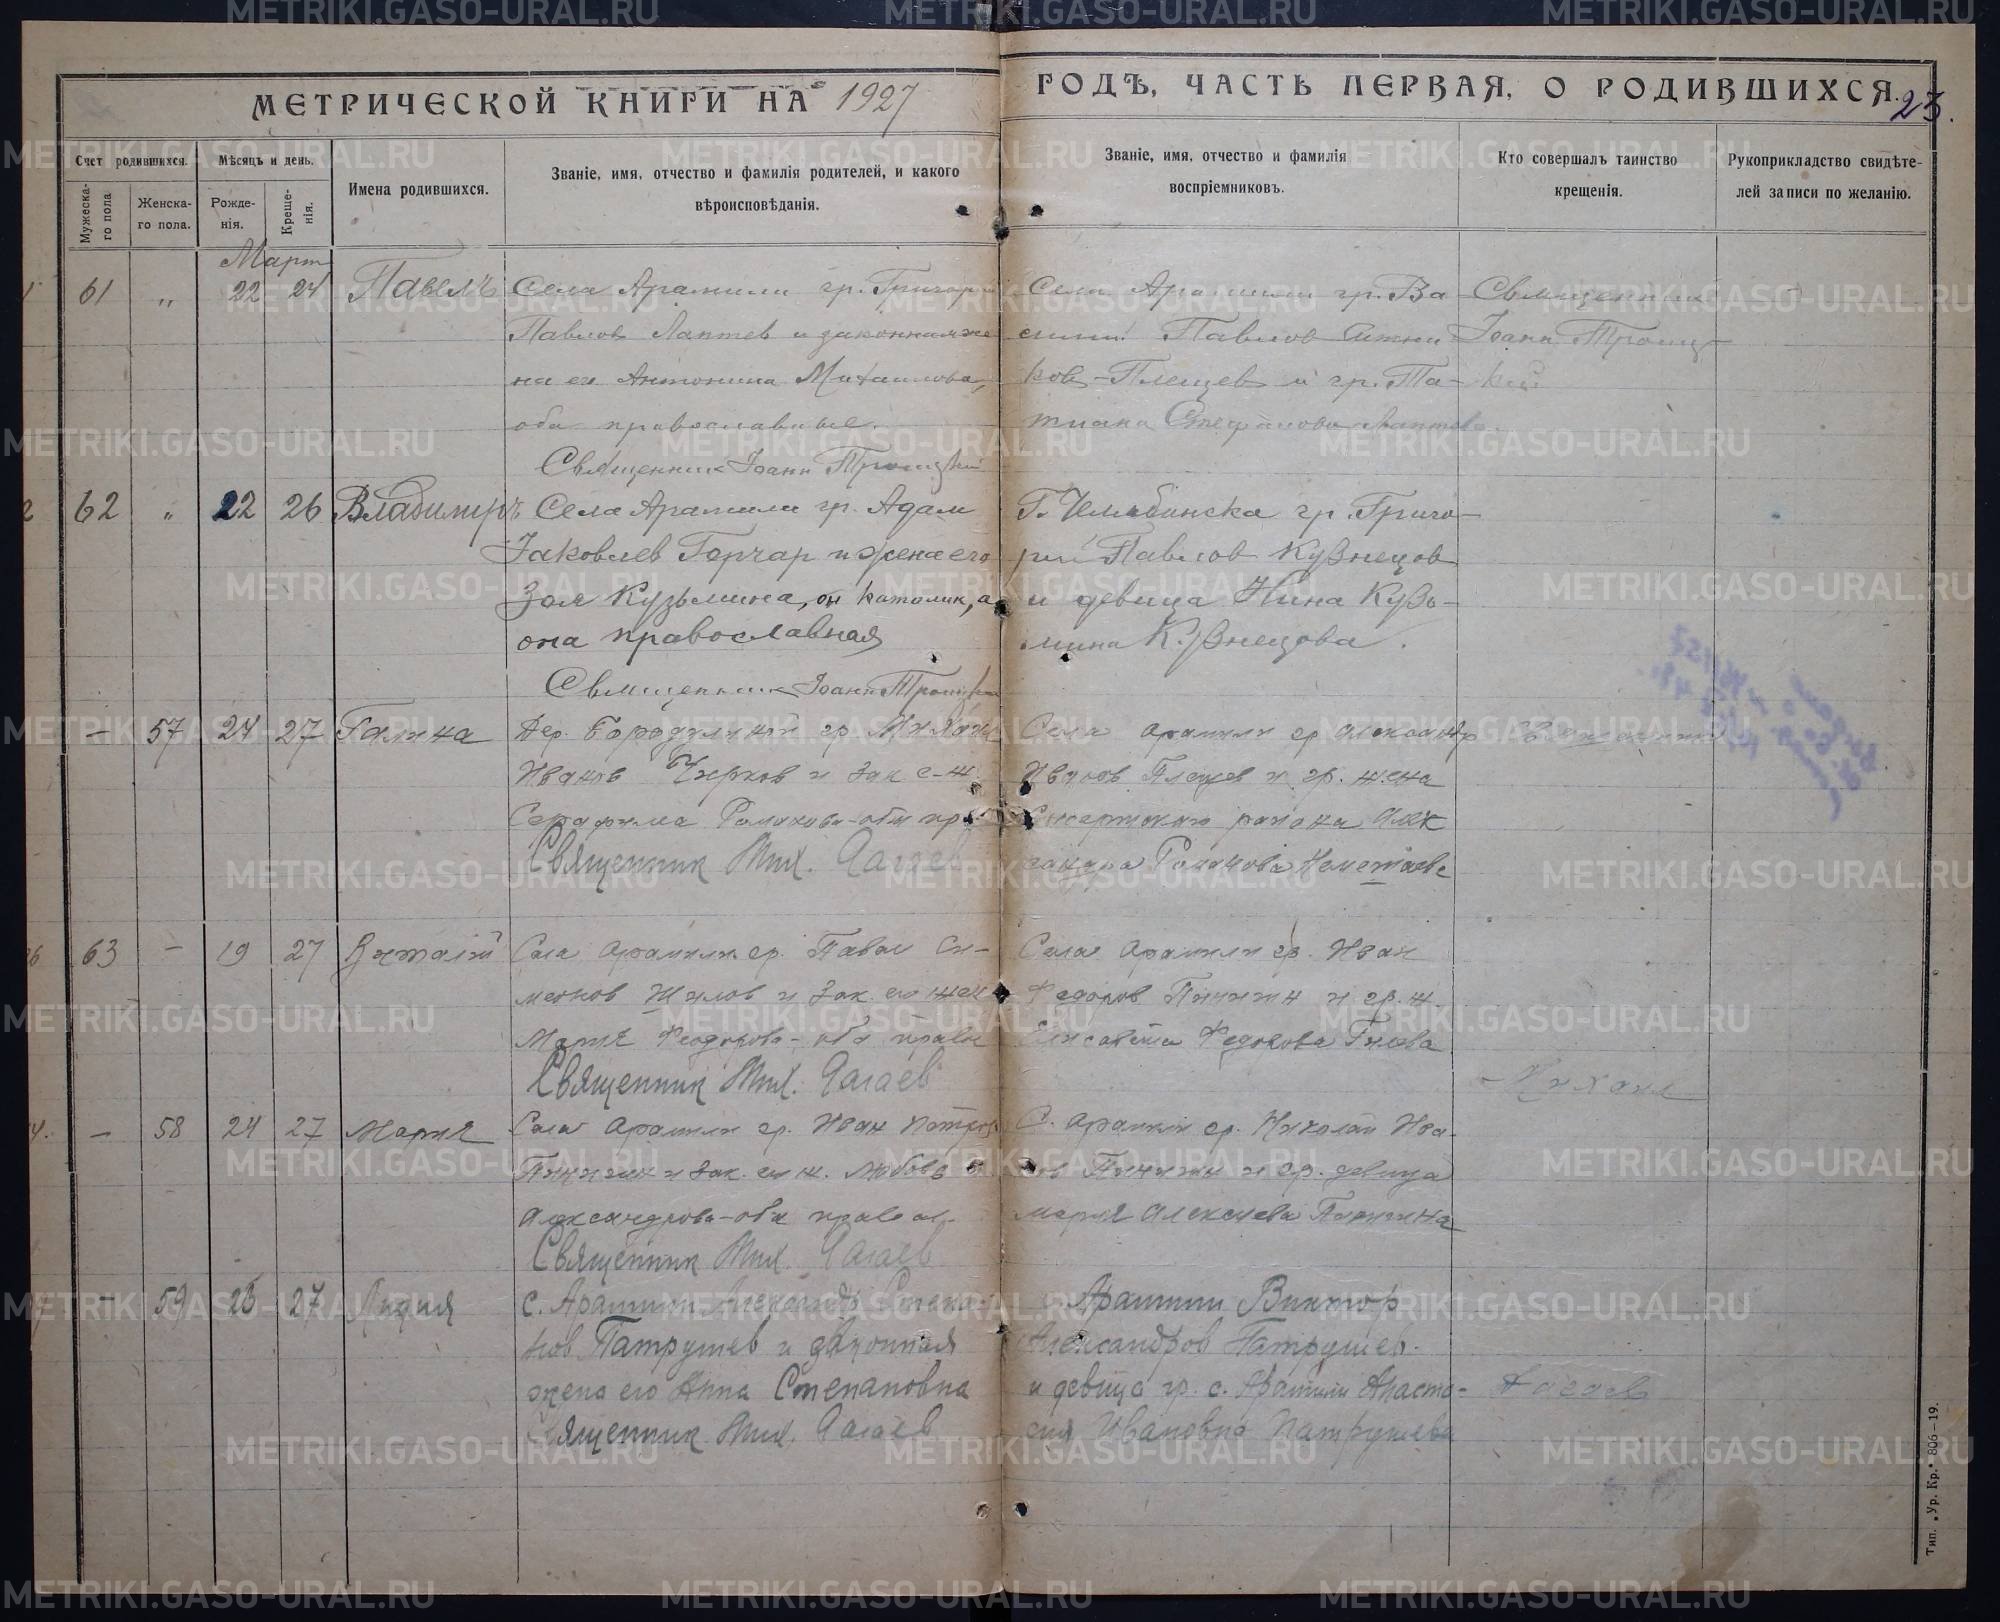 МЕТРИЧЕСКОЙ КНИГИ НА 1927
ГОДЪ, ЧАСТЬ ПЕРВАЯ, О РОДИВШИХСЯ.
23.
Счет родившихся.
Мѣсяцъ и день.
Имена родившихся.
Званіе, имя, отчество и фамилія родителей, и какого
вѣроисповѣданія.
Мужеска-
го пола
Женска-
го пола.
Рожде-
нія.
Креще-
нія.
Званіе, имя, отчество и фамилія
воспріемниковъ.
Кто совершалъ таинство
крещенія.
Рукоприкладство свидѣте-
лей записи по желанію.
Март
61 „ 22 24 Павелъ
Села Арамили гр. Григорий
Павлов Лаптев и законная же-
на его Антонина Михаилова,
оба православные.
Священник Іоанн Троицкий
Села Арамили гр. Ва-
силий Павлов
ков-Плещев и гр. Та-
тиана Степанова Лаптева.
Священник
Іоанн Троиц-
кий
62 „ 22 26 Владимиръ
Села Арамили гр. Адам
Іаковлев Горчар и жена его
Зоя Кузьмина, он католик, а
она православная
Священник Іоанн Троицкий
Г. Челябинска гр. Григо-
рий Павлов Кузнецов
и девица Нина Кузь-
мина Кузнецова.
— 57 24 27 Галина
Дер. Бородулиной гр. Михаил
Иванов Чирков и зак е-ж.
Серафима Романова-оба пр
Священник Мих. Агаев
Села Арамили гр Александр
Иванов Плещев и гр. жена
Сысертскаго района Алек
сандра Романова
Священник
63 — 19 27 Виталий
Села Арамили гр. Павел Си-
меонов Шилов и зак. ег жен
Мария Феодорова-оба правос
Священник Мих. Агаев
Села Арамили гр. Иван
Федоров Пинигин и гр. ж.
Елисавета Федорова Гилева
Михаил
— 58 24 27 Мария
Села Арамили гр. Иван Петров
Пинигин и зак. ег ж. Любовь
Александрова-оба правосл.
Священник Мих. Агаев
С. Арамили гр. Николай Ива-
нов Пинигин и гр. девица
Мария Алексиева Пинигина
— 59 23 27 Лидия
с. Арамили Александр Степа-
нов Патрушев и законная
жена его Анна Степановна
Священник Мих. Агаев
с. Арамили Виктор
Александров Патрушев.
и девица гр. с. Арамили Анаста-
сия Ивановна Патрушева
Агаев
Тип. „Ур. Кр.“ 806—19.
METRIKI.GASO-URAL.RU